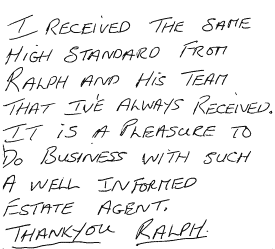 I RECEIVED THE SAME
HIGH STANDARD FROM
RALPH AND HIS TEAM
THAT I'VE ALWAYS RECEIVED.
IT IS A PLEASURE TO
DO BUSINESS WITH SUCH
A WELL INFORMED
ESTATE AGENT.
THANKYOU RALPH.